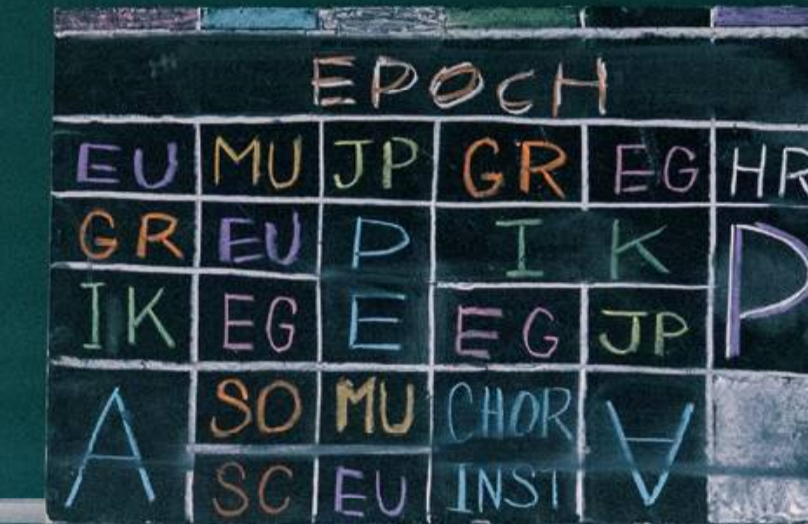 EPOCH
EU MU JP GR EG HR
GR EU P I K P
IK EG E EG JP
A SO MU CHOR A
SC EU INST